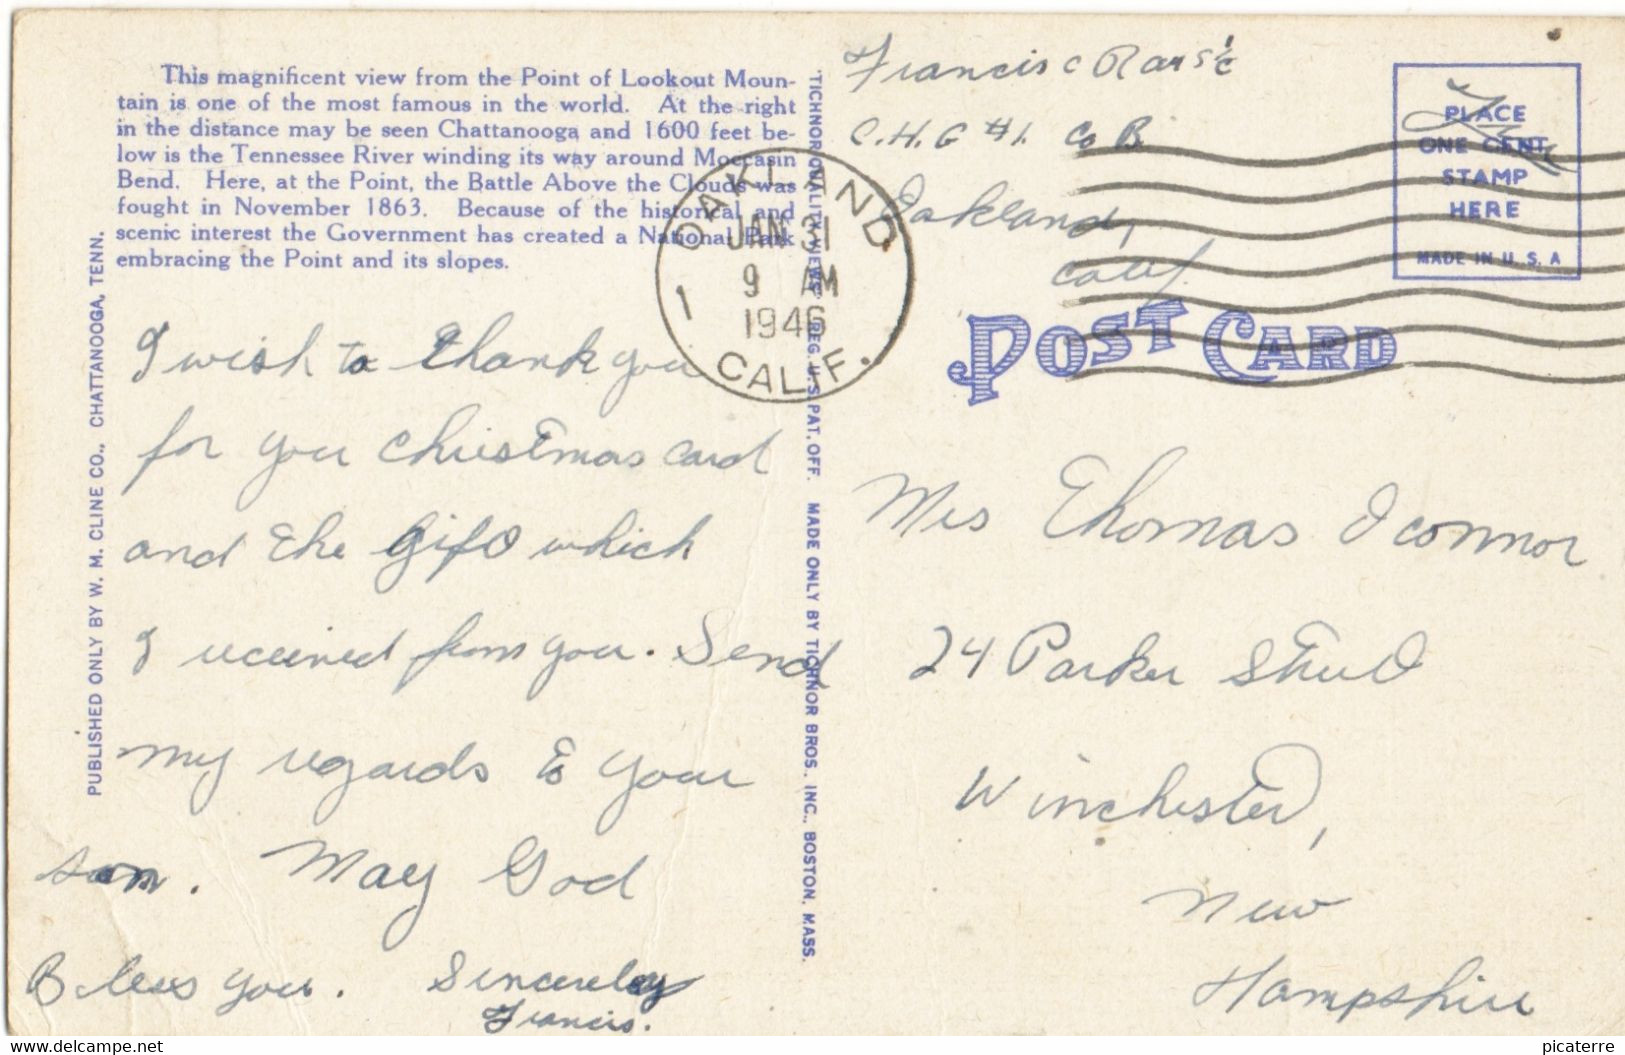 This magnificent view from the Point of Lookout Moun-
tain is one of the most famous in the world. At the right
in the distance may be seen Chattanooga and 1600 feet be-
low is the Tennessee River winding its way around Moccasin
Bend. Here, at the Point, the Battle Above the Clouds was
fought in November 1863. Because of the historical and
scenic interest the Government has created a National Park
embracing the Point and its slopes.
PUBLISHED ONLY BY W. M. CLINE CO., CHATTANOOGA, TENN.
I wish to thank you
for your Christmas card
and the gift which
I received from you. Send
my regards to your
son. May God
Bless you. Sincereley
Francis.
"TICHNOR QUALITY VIEWS," REG. U. S. PAT. OFF. MADE ONLY BY TICHNOR BROS., INC., BOSTON, MASS.
OAKLAND
JAN 31
9 AM
1946
1
CALIF.
Francis C
C.H.G #1. Co B.
Oakland,
Calif.
Free
PLACE
ONE CENT
STAMP
HERE
MADE IN U. S. A
POST CARD
Mrs Thomas Oconnor
24 Parker Street
Winchester,
New
Hampshire
www.delcampe.net
picaterre